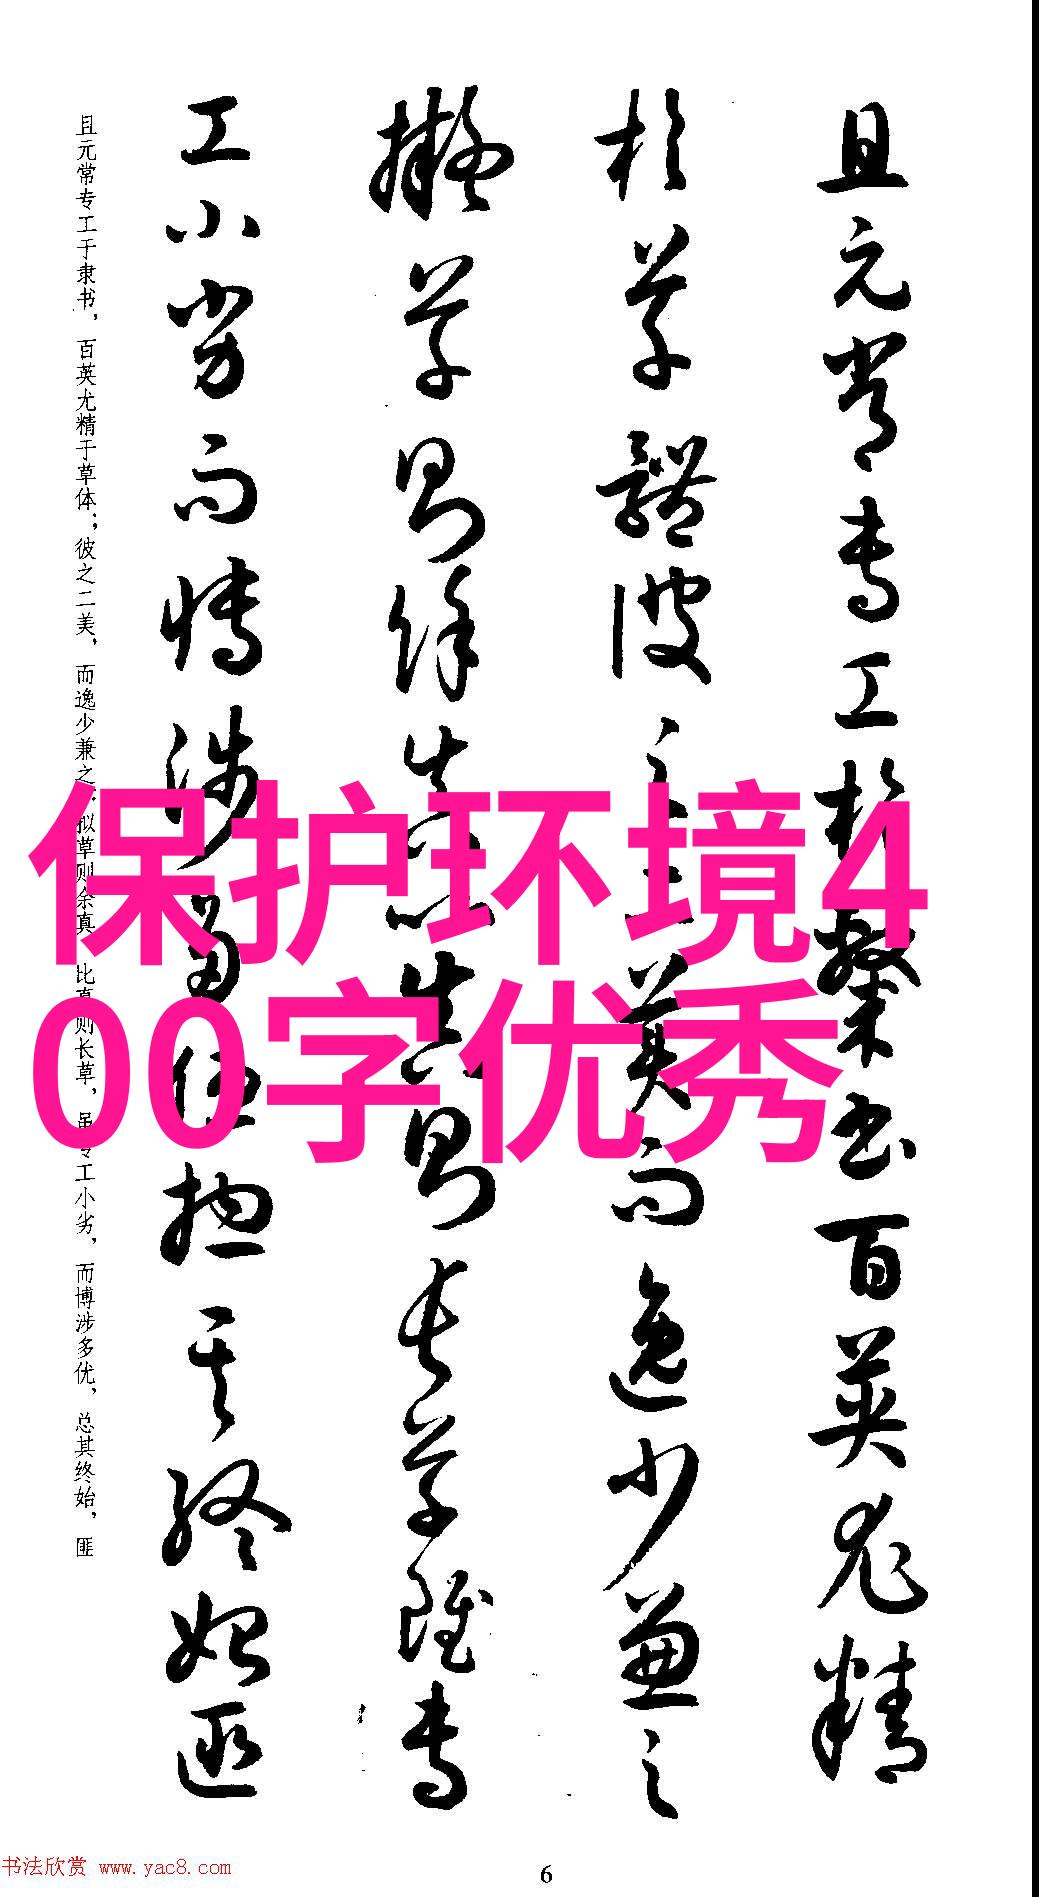 且元常专工於隸书百英尤精
於草體彼之二美而逸少兼之
擬草则馀真比真则长草雖专
工小劣而博涉多优揔其终始匪
且元常专工于隶书，百英尤精于草体；彼之二美，而逸少兼之。拟草则余真，比真则长草，虽专工小劣，而博涉多优，总其终始，匪
保护环境4
00字优秀
书法欣赏 www.yac8.com
6